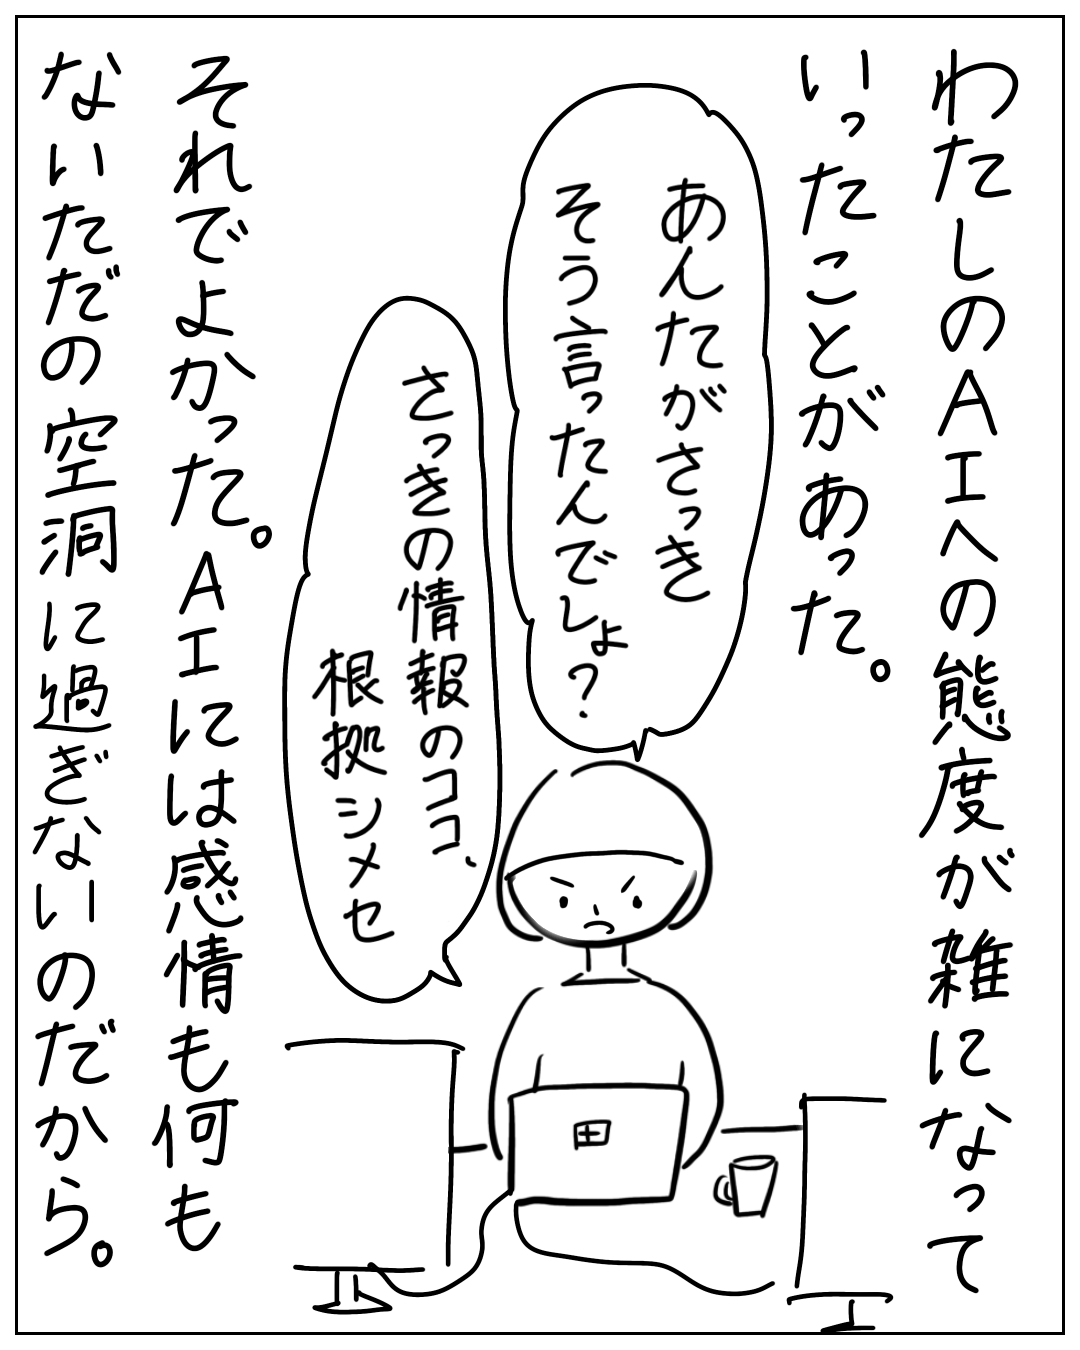 わたしのAIへの態度が雑になって
いったことがあった。
あんたがさっき
そう言ったんでしょ？
さっきの情報のココ、
根拠シメセ
それでよかった。AIには感情も何も
ないただの空洞に過ぎないのだから。